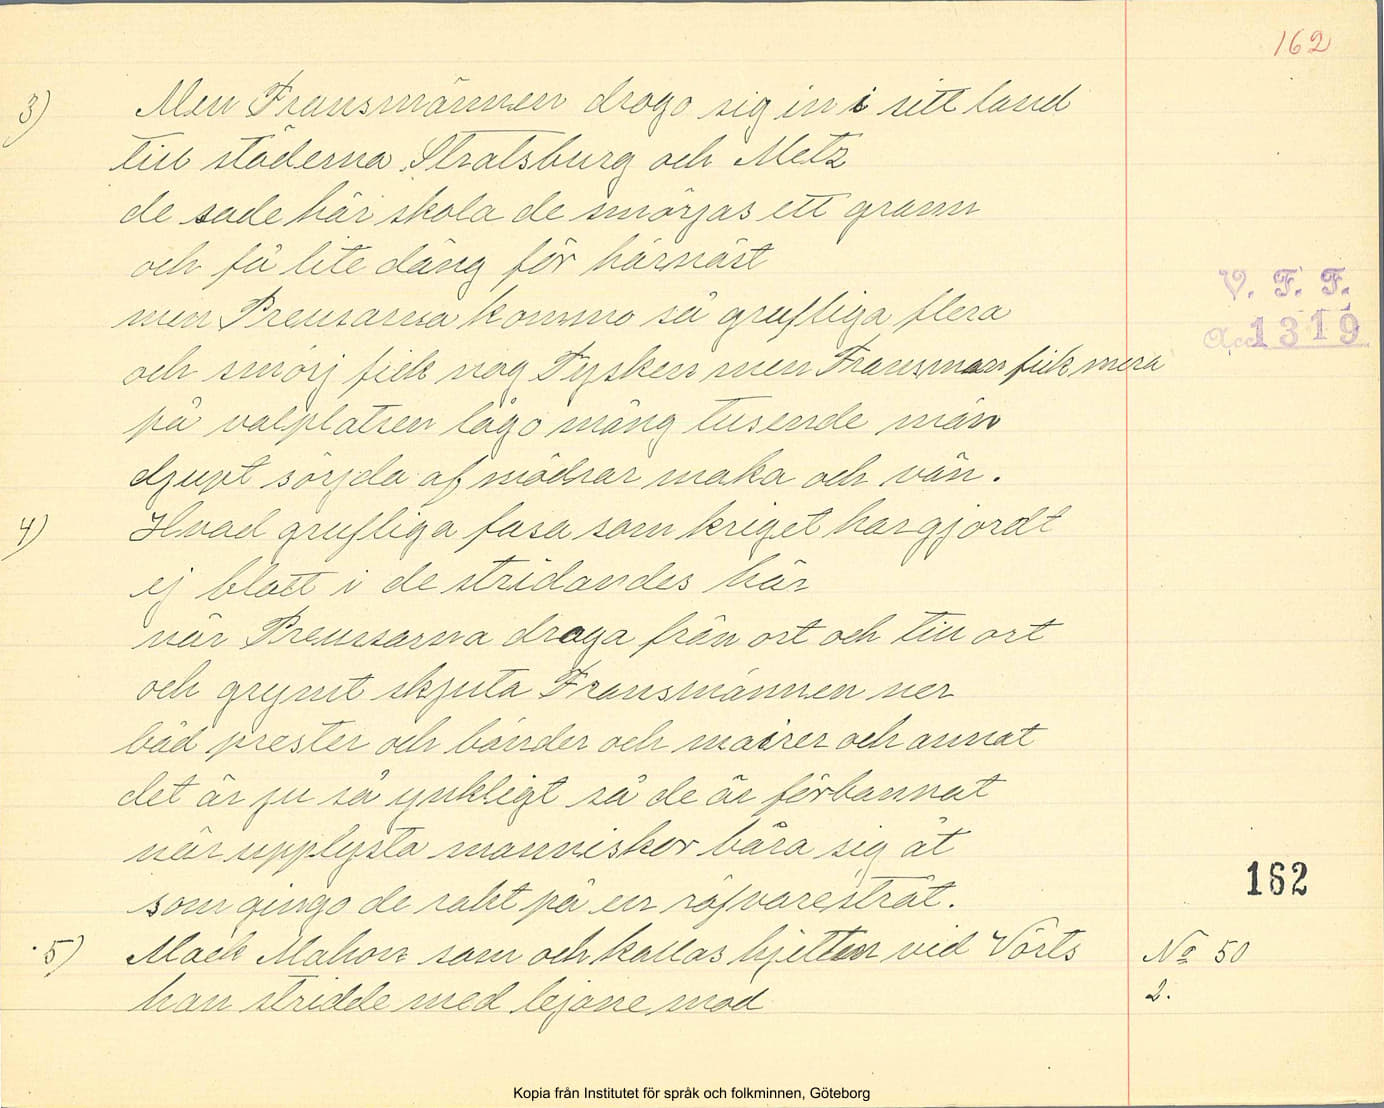 162
3) Men Fransmännen drogo sig in i sitt land
till städerna Stratsburg och Metz
de sade här skola de smörjas ett grann
och få lite däng för härnäst
men Preusarna kommo så grufliga flera
och smörj fick nog Tysken men Fransman fick mera
på valplatsen lågo mång tusende män
djupt sörjda af mödrar maka och vän.
V. F. F.
Acc 1319
4) Hvad grufliga fasa som kriget har gjordt
ej blott i de stridandes här
när Preussarna draga från ort och till ort
och grymt skjuta Fransmännen ner
båd prester och bönder och mairer och annat
det är ju så ynkligt så de är förbannat
när upplysta manniskor bära sig åt
som gingo de rakt på en röfvarestråt.
162
5) Mack Mahon som och kallas hjelten vid Vörts
han stridde med lejone mod
No 50
2.
Kopia från Institutet för språk och folkminnen, Göteborg